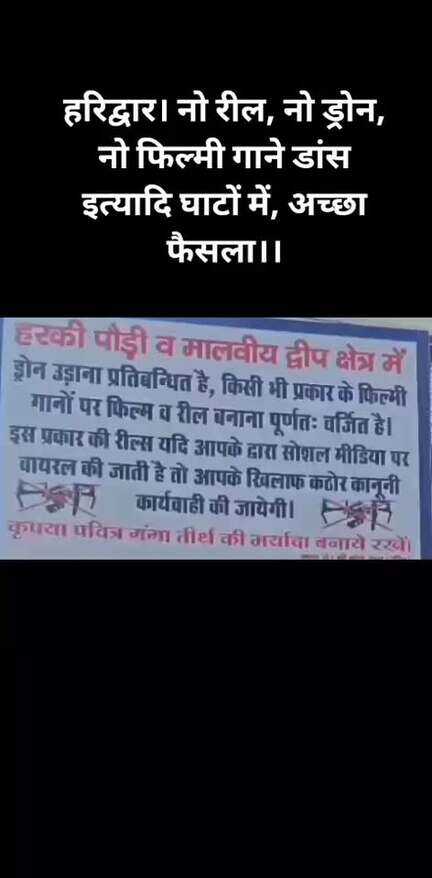 हरिद्वार। नो रील, नो ड्रोन,
नो फिल्मी गाने डांस
इत्यादि घाटों में, अच्छा
फैसला।।
हरकी पौड़ी व मालवीय द्वीप क्षेत्र में
ड्रोन उड़ाना प्रतिबन्धित है, किसी भी प्रकार के फिल्मी
गानों पर फिल्म व रील बनाना पूर्णतः वर्जित है।
इस प्रकार की रील्स यदि आपके द्वारा सोशल मीडिया पर
वायरल की जाती है तो आपके खिलाफ कठोर कानूनी
कार्यवाही की जायेगी।
कृपया पवित्र गंगा तीर्थ की मर्यादा बनाये रखें।